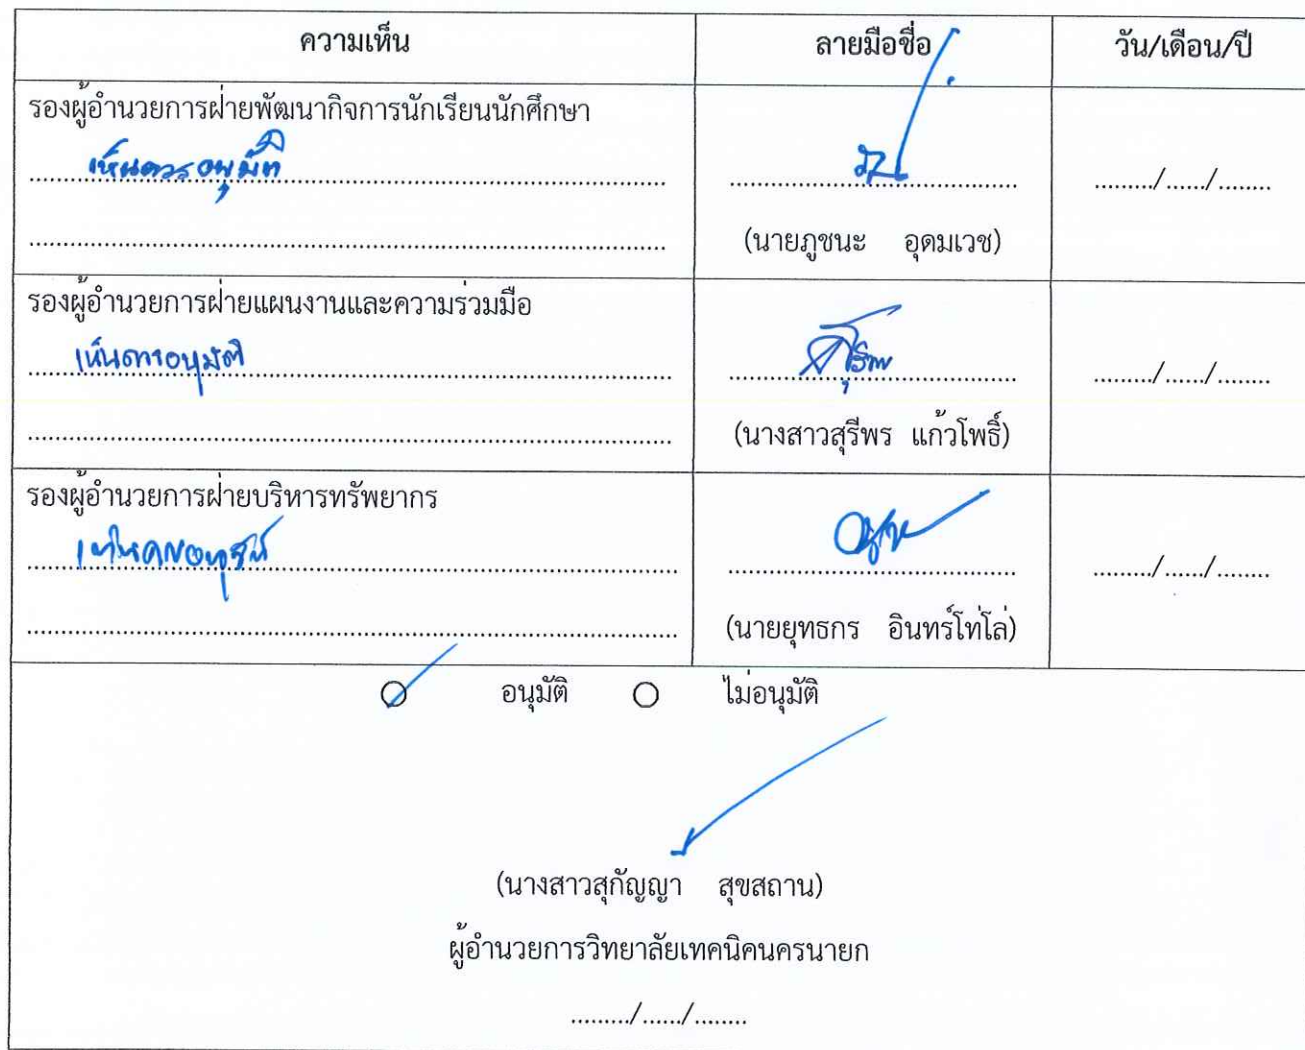 ความเห็น ลายมือชื่อ วัน/เดือน/ปี
รองผู้อำนวยการฝ่ายพัฒนากิจการนักเรียนนักศึกษา
เห็นควรอนุมัติ ........./....../........
(นายภูชนะ อุดมเวช)
รองผู้อำนวยการฝ่ายแผนงานและความร่วมมือ
เห็นควรอนุมัติ ........./....../........
(นางสาวสุรีพร แก้วโพธิ์)
รองผู้อำนวยการฝ่ายบริหารทรัพยากร
เห็นควรอนุมัติ ........./....../........
(นายยุทธกร อินทร์โทโล่)
อนุมัติ ไม่อนุมัติ
(นางสาวสุกัญญา สุขสถาน)
ผู้อำนวยการวิทยาลัยเทคนิคนครนายก
........./....../........